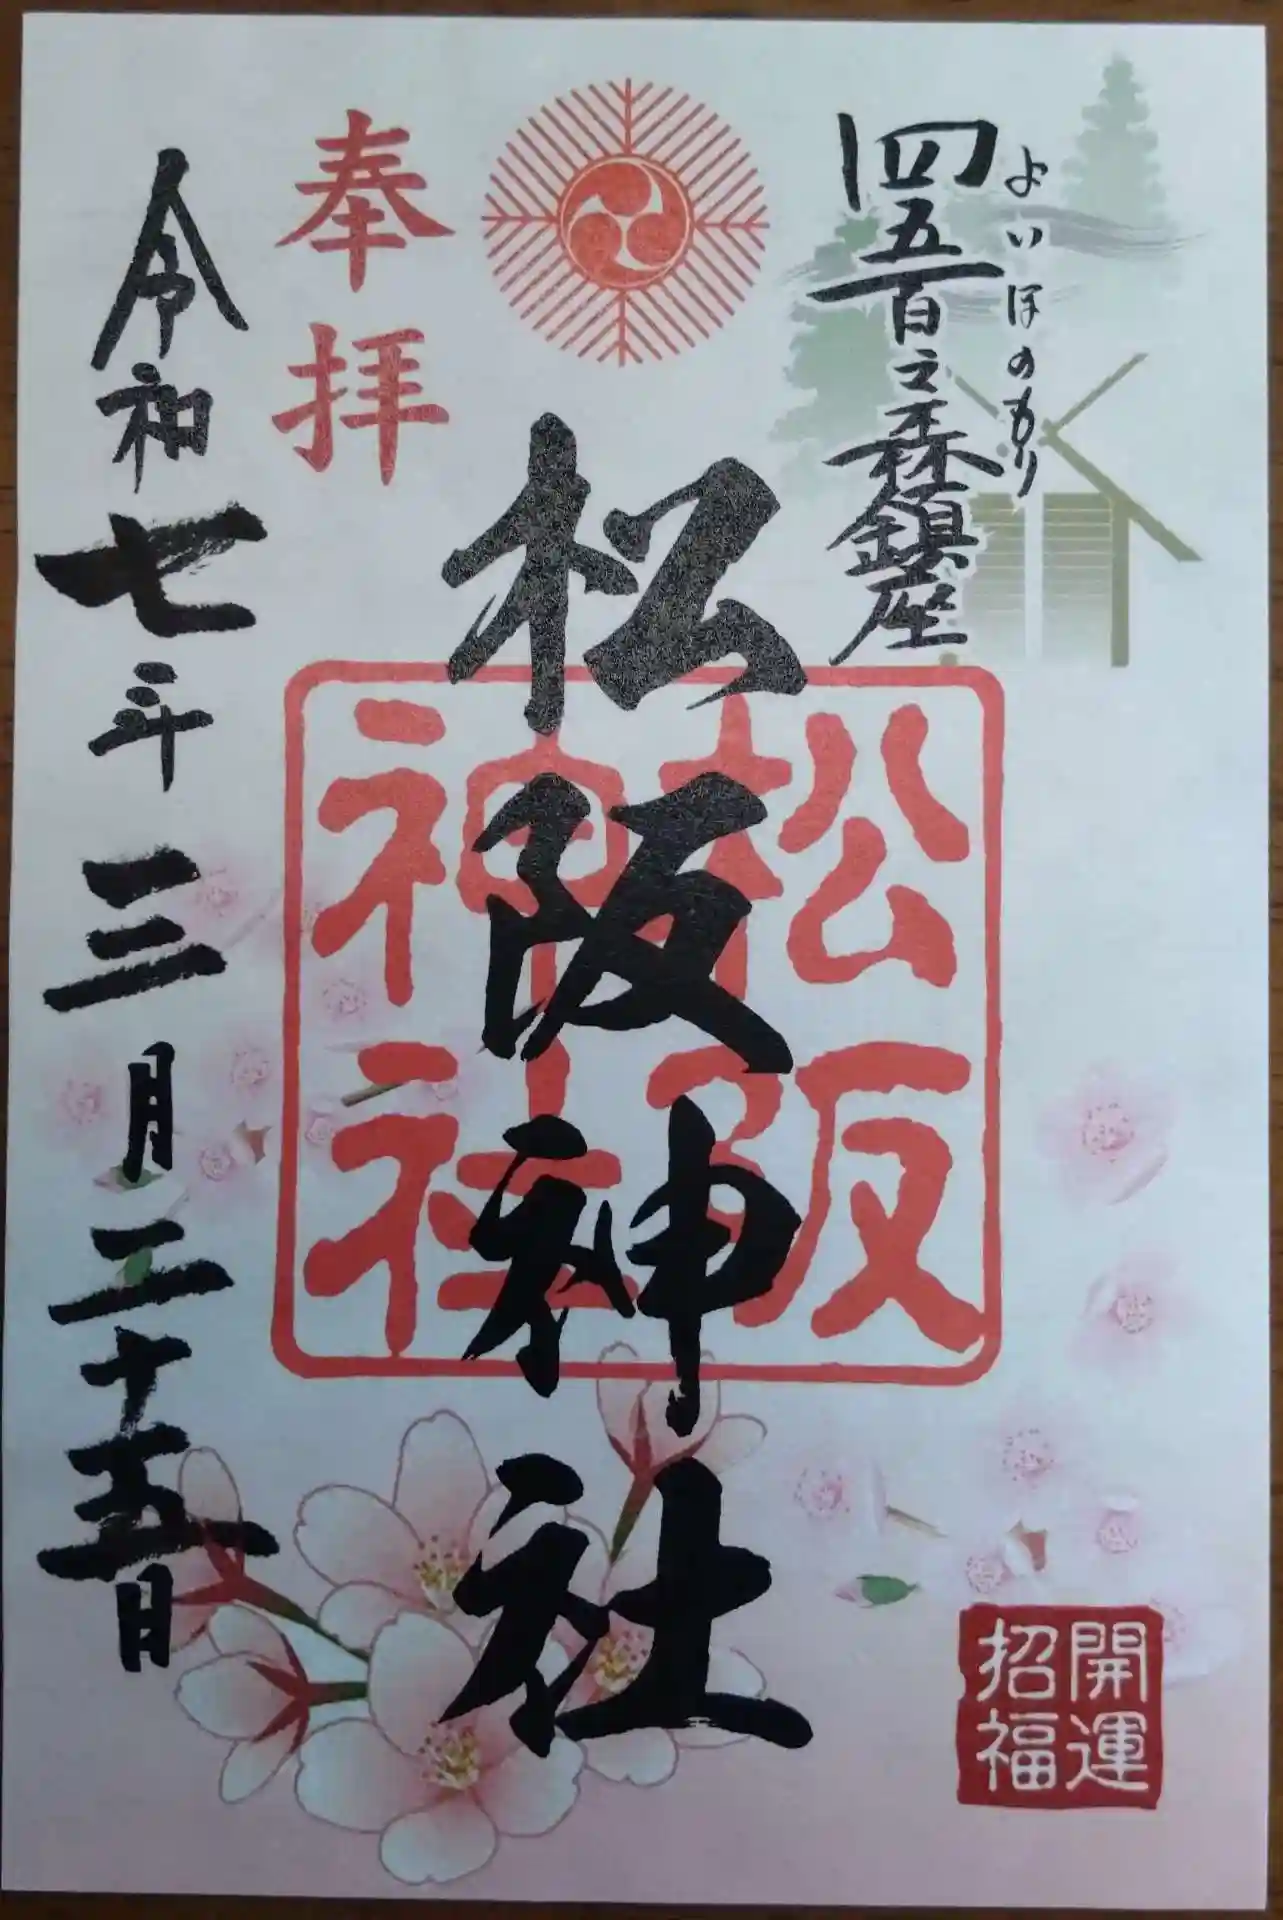 四五百之森鎮座
よいほのもり
奉拝
松阪神社
松阪
神社
令和七年三月二十五日
開運
招福